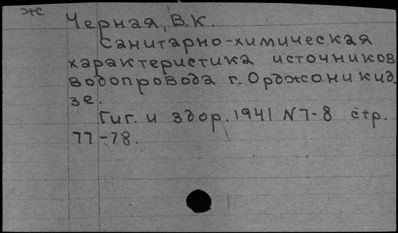 ж
Черная, В.К.
Санитарно-химическая
характеристика источников
водопровода г. Орджоникид-
зе.
Гиг. и здор. 1941 N7-8 стр.
77-78.